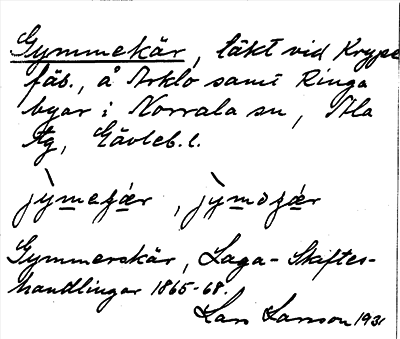 Gymmekär, täkt vid Krype
fäb., å Arklo samt Ringa
byar i Norrala sn, Ala
tg, Gävleb. l.
jỳmeʝǽr, jỳmoʝǽr
Gymmerskär, Laga-Skiftes-
handlingar 1865-68.
Lars Larsson 1931